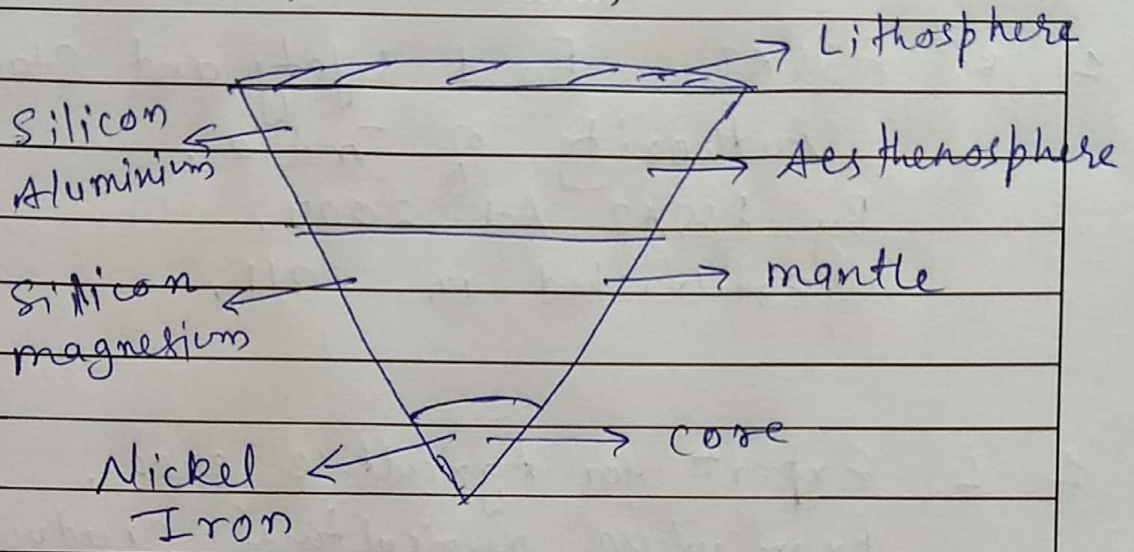 Lithosphere
Silicon
Aluminium
Aesthenosphere
Silicon
magnesium
mantle
Nickel
Iron
core